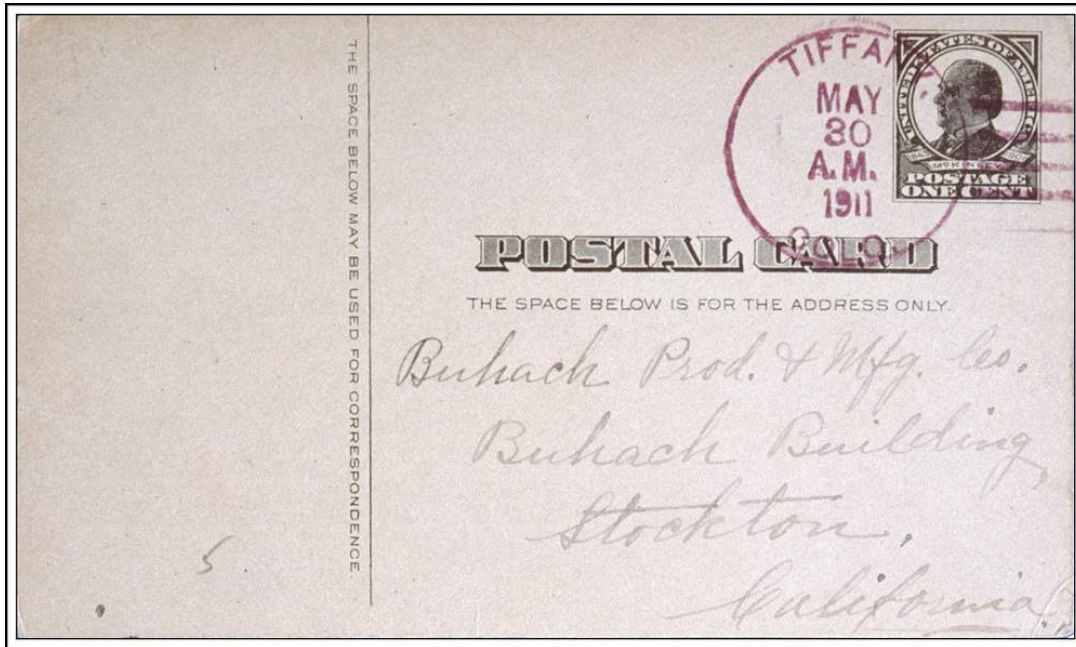 THE SPACE BELOW MAY BE USED FOR CORRESPONDENCE.
TIFFANY,
MAY
30
A.M.
1911
COLO.
UNITED STATES OF AMERICA
1843 1901
McKINLEY
POSTAGE
ONE CENT
POSTAL CARD
THE SPACE BELOW IS FOR THE ADDRESS ONLY.
Buhach Prod. & Mfg. Co.
Buhach Building
Stockton,
California.
5.